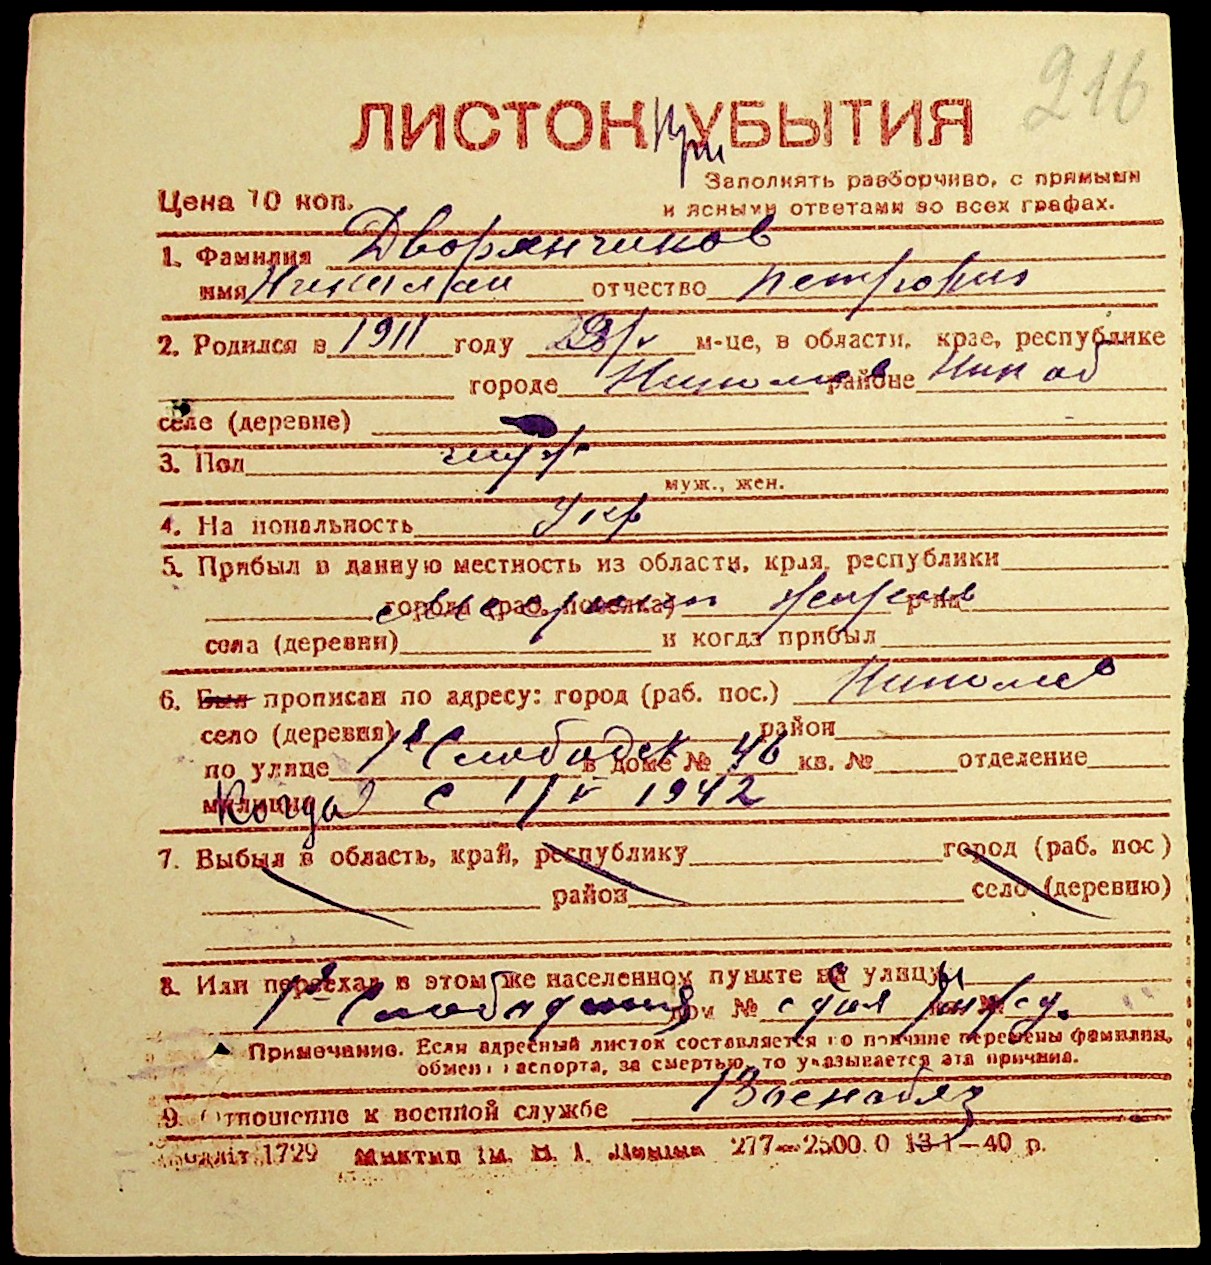 216
ЛИСТОК При УБЫТИЯ
Заполнять разборчиво, с прямыми
Цена 10 коп.
и ясными ответами во всех графах.
1. Фамилия Дворянчиков
имя Николай отчество Петрович
2. Родился в 1911 году м-це, в области, крае, республике
городе Николаев районе Ник об
селе (деревне)
3. Пол муж
муж., жен.
4. На иональность Укр
5. Прибыл в данную местность из области, края, республики
города (раб. поселка) р-на
села (деревни) и когда прибыл
6. Был прописан по адресу: город (раб. пос.) Николаев
село (деревня) район
по улице 1я Слободск в доме № 46 кв. № отделение
милиции Когда с 1/V 1942
7. Выбыл в область, край, республику город (раб. пос)
район село (деревню)
8. Или переехал в этом же населенном пункте на улицу
1я Слободская дом № кв. №
Примечание. Если адресный листок составляется по причине перемены фамилии,
обмена паспорта, за смертью, то указывается эта причина.
9. Отношение к военной службе Военобяз
1729 277—2500.0 13-1—40 р.